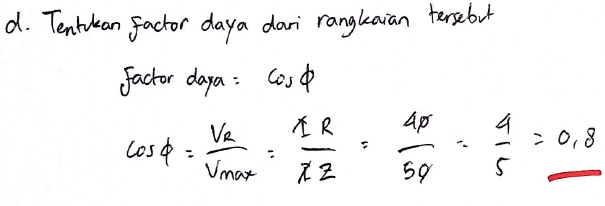 d. Tentukan factor daya dari rangkaian tersebut
factor daya = cos ϕ
cos ϕ = VR/Vmax = I R/I Z = 40/50 = 4/5 = 0,8